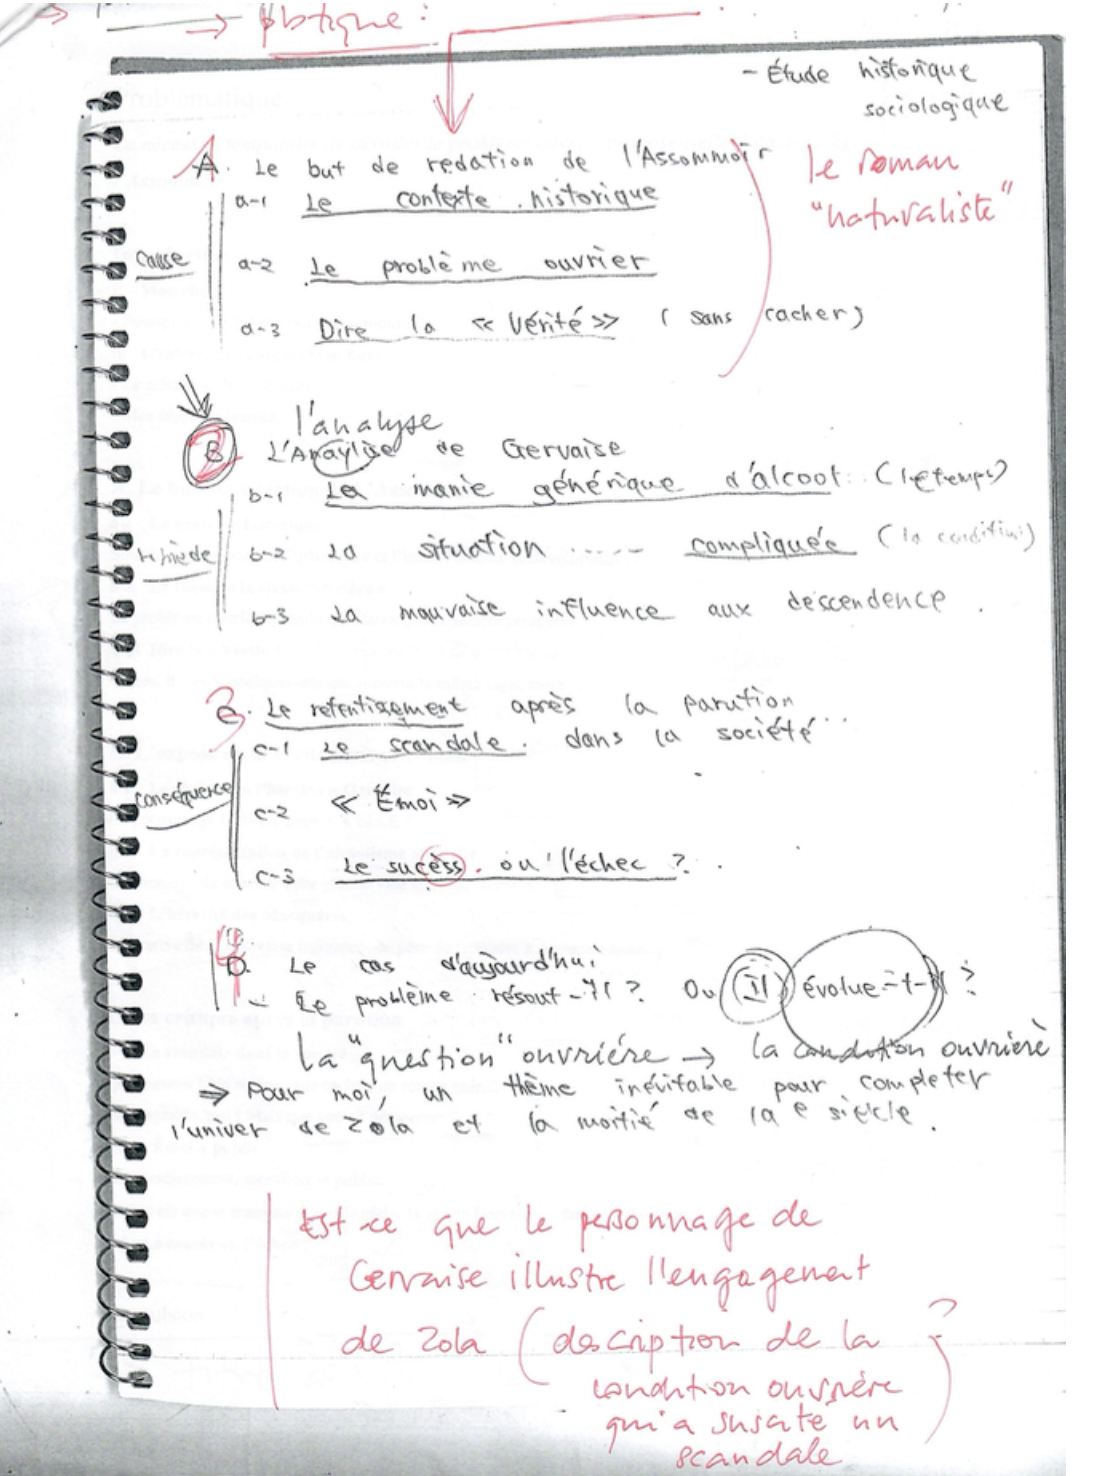 → pbtique :
- Étude historique
sociologique
1 A. Le but de redation de l'Assommoir
le roman
"naturaliste"
a-1 Le contexte historique
cause
a-2 Le problème ouvrier
a-3 Dire la « Vérité » ( sans cacher )
l'analyse
2 B L'Anaylise de Gervaise
b-1 La manie générique d'alcool
b-2 La situation ..... compliquée
b-3 La mauvaise influence aux descendence .
3 C. Le retentissement après la parution
c-1 Le scandale . dans la société
conséquence
c-2 « Émoi »
c-3 Le sucèss . ou l'échec ? .
4 D. Le cas d'aujourd'hui
- Le problème résout-il ? Ou (il) évolue-t-il ?
la "question" ouvriére → la condition ouvrière
⇒ Pour moi, un thème inévitable pour completer
l'univer de Zola et la moitié de la e siècle .
Est-ce que le personnage de
Gervaise illustre l'engagement
de Zola ( description de la
condition ouvrière
qui a suscité un
scandale ) ?